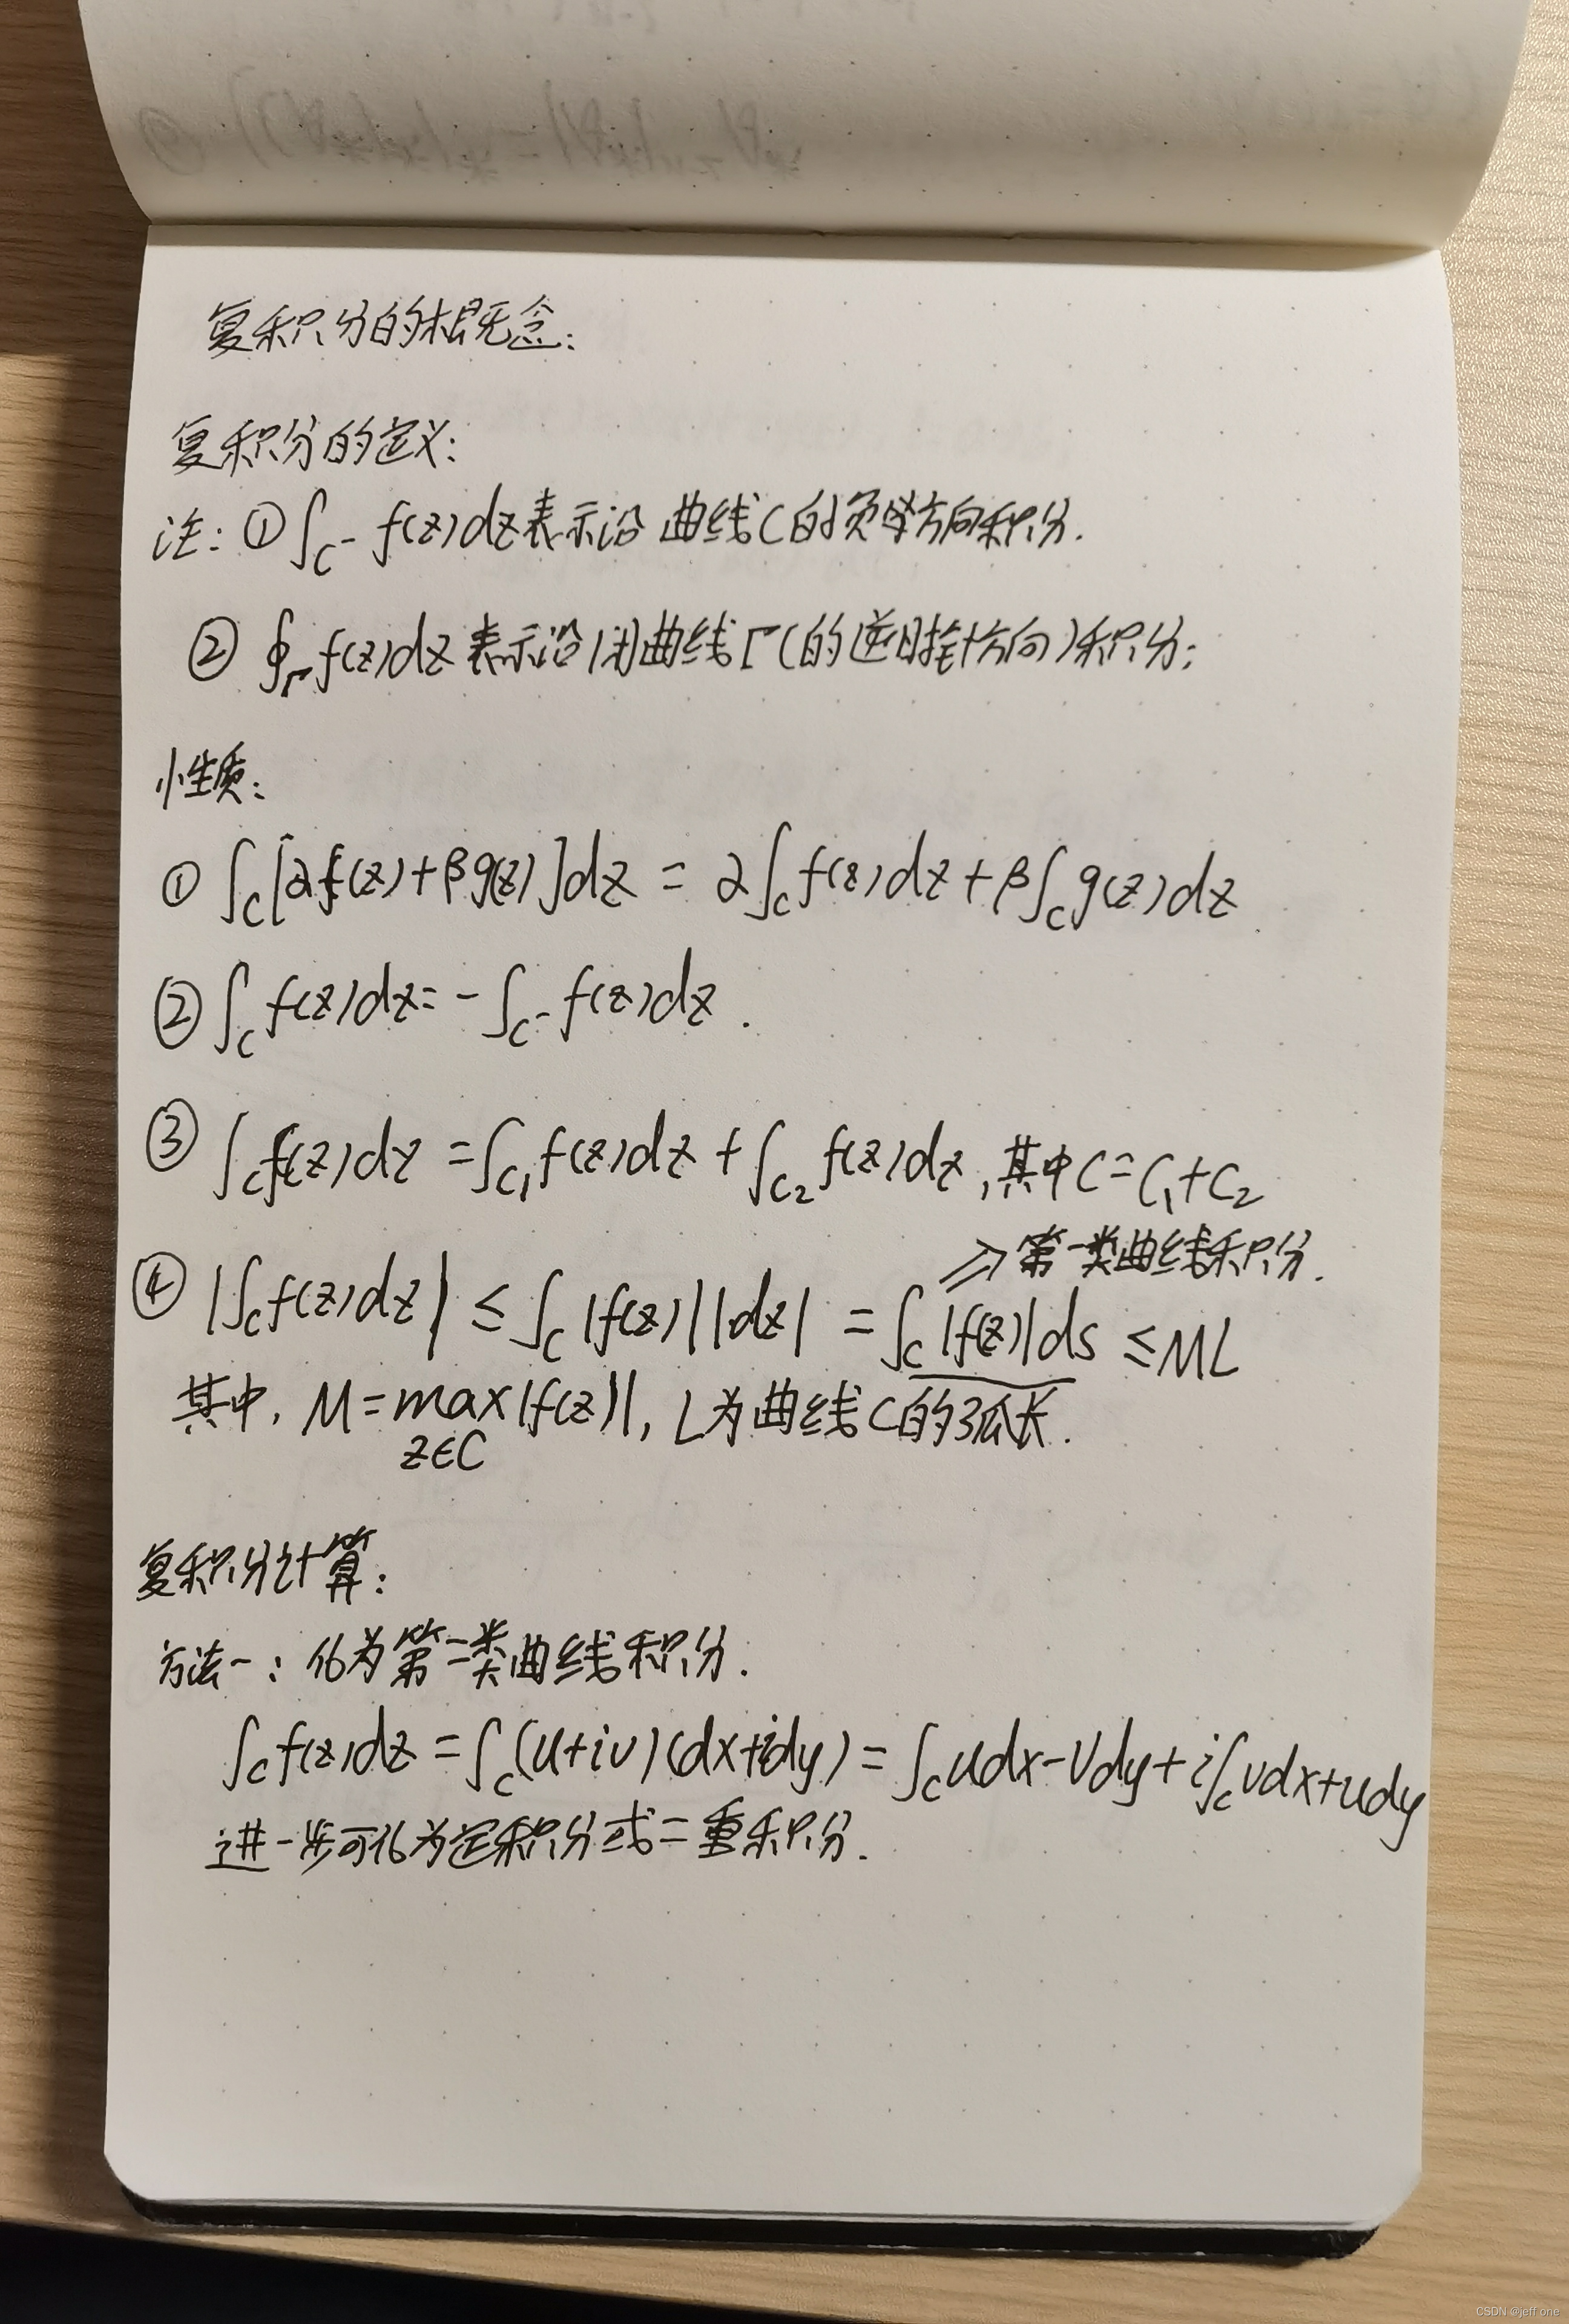 复积分的概念:
复积分的定义:
注: ① ∫_{C⁻} f(z)dz 表示沿曲线C的负方向积分.
② ∮_Γ f(z)dz 表示沿闭曲线Γ(的逆时针方向)积分;
性质:
① ∫_C [αf(z)+βg(z)]dz = α∫_C f(z)dz + β∫_C g(z)dz.
② ∫_C f(z)dz = -∫_{C⁻} f(z)dz.
③ ∫_C f(z)dz = ∫_{C₁} f(z)dz + ∫_{C₂} f(z)dz, 其中C=C₁+C₂
⇒ 第一类曲线积分.
④ |∫_C f(z)dz| ≤ ∫_C |f(z)||dz| = ∫_C |f(z)|ds ≤ ML
其中, M = max|f(z)|, L为曲线C的弧长.
z∈C
复积分计算:
方法一: 化为第二类曲线积分.
∫_C f(z)dz = ∫_C (u+iv)(dx+idy) = ∫_C udx-vdy + i∫_C vdx+udy
进一步可化为定积分或二重积分.
CSDN @jeff one